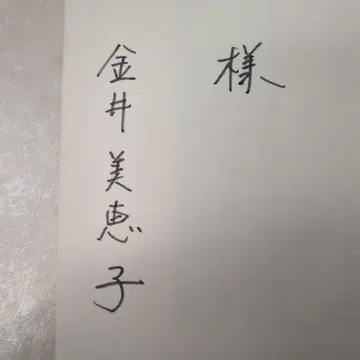 様
金井美恵子